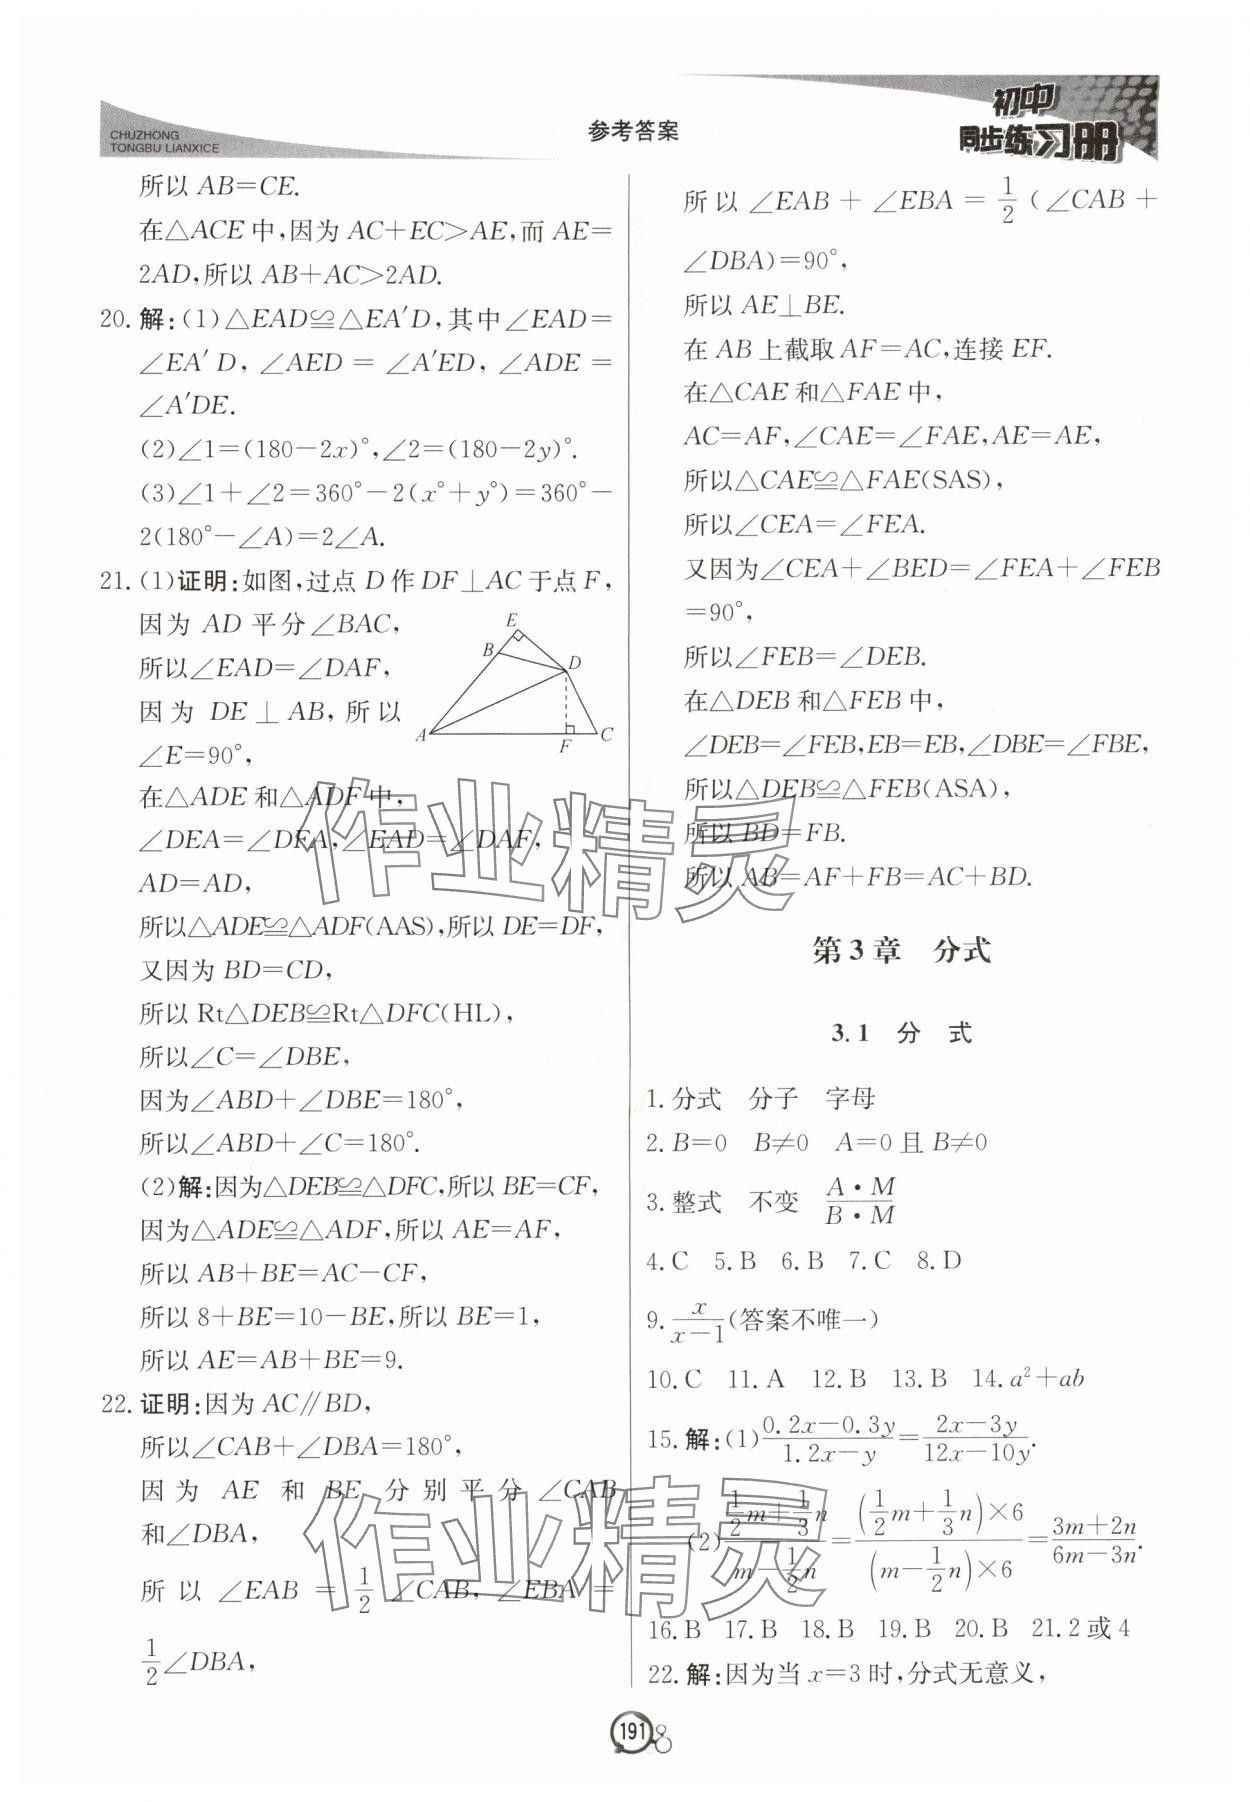 CHUZHONG
TONGBU LIANXICE
参考答案
初中
同步练习册
所以 AB=CE.
在△ACE 中,因为 AC+EC>AE,而 AE=
2AD,所以 AB+AC>2AD.
20. 解:(1)△EAD≌△EA′D,其中∠EAD=
∠EA′D,∠AED=∠A′ED,∠ADE=
∠A′DE.
(2)∠1=(180-2x)°,∠2=(180-2y)°.
(3)∠1+∠2=360°-2(x°+y°)=360°-
2(180°-∠A)=2∠A.
21. (1)证明:如图,过点 D 作 DF⊥AC 于点 F,
因为 AD 平分∠BAC,
所以∠EAD=∠DAF,
因为 DE⊥AB,所以
∠E=90°,
E
B
D
A
F
C
在△ADE 和△ADF 中,
∠DEA=∠DFA,∠EAD=∠DAF,
AD=AD,
所以△ADE≌△ADF(AAS),所以 DE=DF,
又因为 BD=CD,
所以 Rt△DEB≌Rt△DFC(HL),
所以∠C=∠DBE,
因为∠ABD+∠DBE=180°,
所以∠ABD+∠C=180°.
(2)解:因为△DEB≌△DFC,所以 BE=CF,
因为△ADE≌△ADF,所以 AE=AF,
所以 AB+BE=AC-CF,
所以 8+BE=10-BE,所以 BE=1,
所以 AE=AB+BE=9.
22. 证明:因为 AC∥BD,
所以∠CAB+∠DBA=180°,
因为 AE 和 BE 分别平分∠CAB
和∠DBA,
所以 ∠EAB = 1/2 ∠CAB, ∠EBA =
1/2∠DBA,
所以 ∠EAB + ∠EBA = 1/2 (∠CAB +
∠DBA)=90°,
所以 AE⊥BE.
在 AB 上截取 AF=AC,连接 EF.
在△CAE 和△FAE 中,
AC=AF,∠CAE=∠FAE,AE=AE,
所以△CAE≌△FAE(SAS),
所以∠CEA=∠FEA.
又因为∠CEA+∠BED=∠FEA+∠FEB
=90°,
所以∠FEB=∠DEB.
在△DEB 和△FEB 中,
∠DEB=∠FEB,EB=EB,∠DBE=∠FBE,
所以△DEB≌△FEB(ASA),
所以 BD=FB.
所以 AB=AF+FB=AC+BD.
第 3 章 分式
3.1 分 式
1. 分式 分子 字母
2. B=0 B≠0 A=0 且 B≠0
3. 整式 不变 A·M/B·M
4. C 5. B 6. B 7. C 8. D
9. x/(x-1)(答案不唯一)
10. C 11. A 12. B 13. B 14. a²+ab
15. 解:(1)(0.2x-0.3y)/(1.2x-y)=(2x-3y)/(12x-10y).
(2)(1/2m+1/3n)/(m-1/2n)=((1/2m+1/3n)×6)/((m-1/2n)×6)=(3m+2n)/(6m-3n).
16. B 17. B 18. B 19. B 20. B 21. 2 或 4
22. 解:因为当 x=3 时,分式无意义,
191
作业精灵
作业精灵